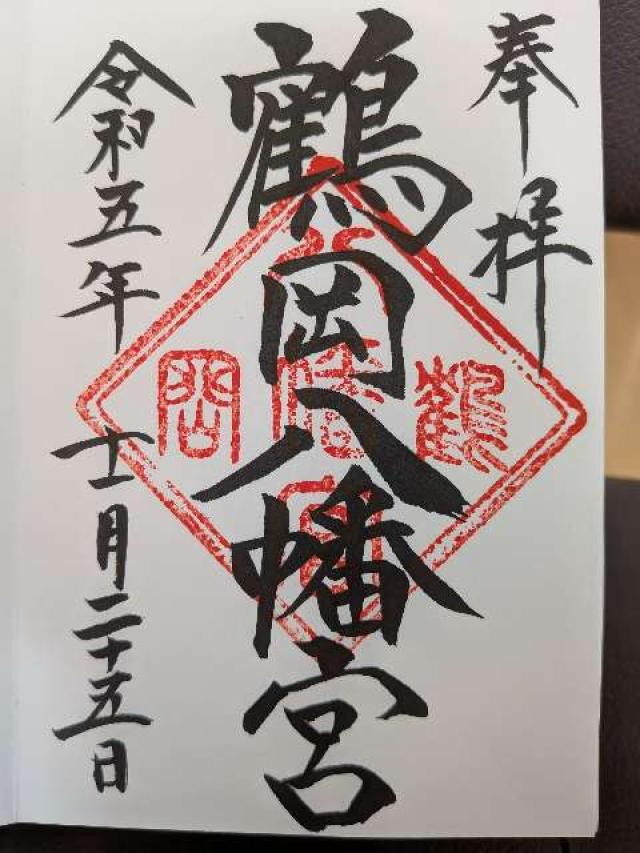 奉拝
鶴岡八幡宮
令和五年 十一月二十五日